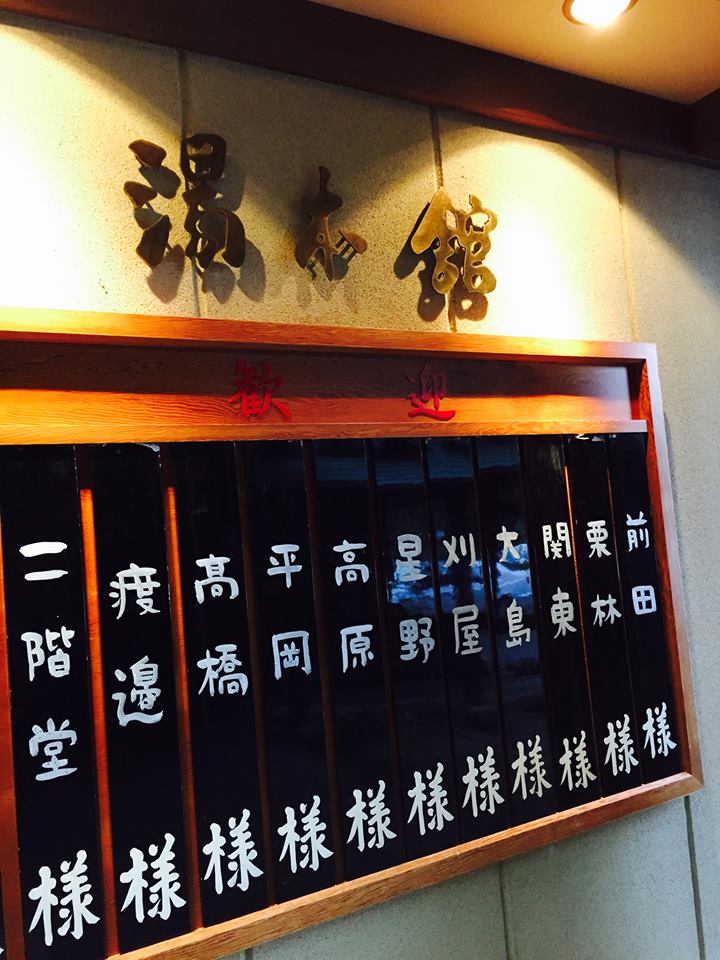 湯本館
歓迎
前田様
栗林様
関東様
大島様
刈屋様
星野様
高原様
平岡様
髙橋様
渡邊様
二階堂様